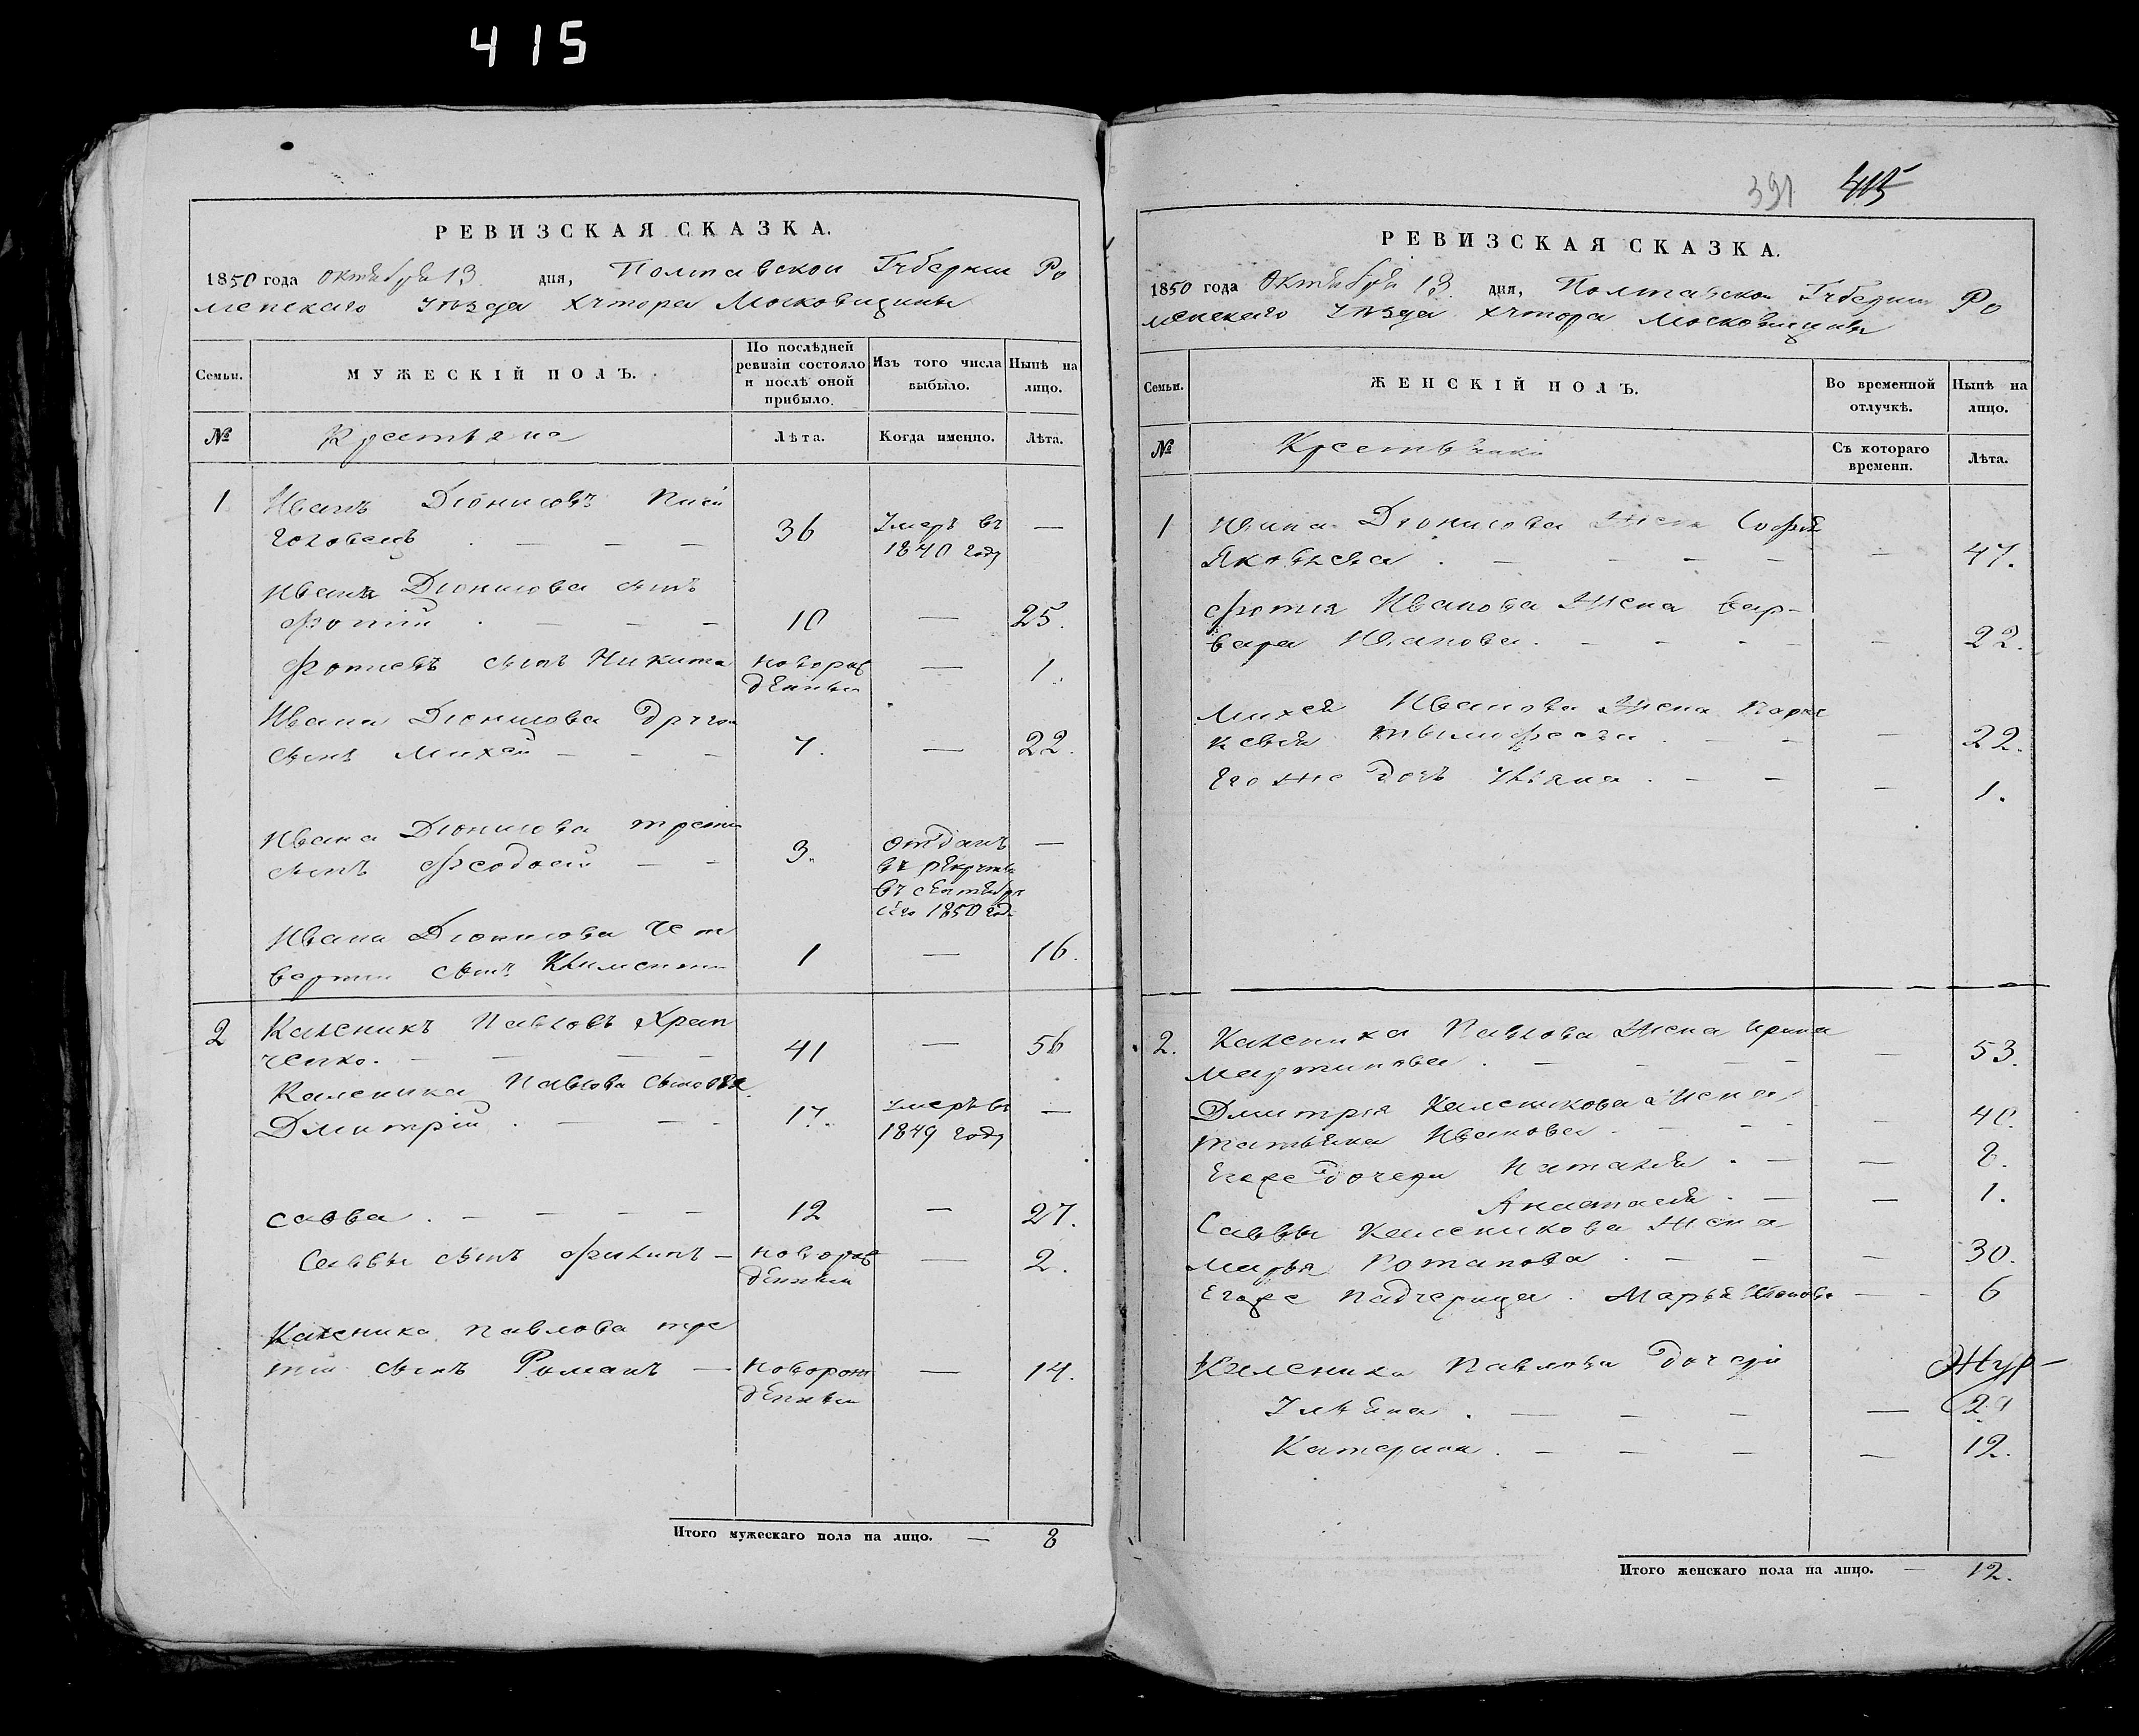 415
РЕВИЗСКАЯ СКАЗКА.
1850 года октября 13 дня, Полтавской Губернии Ро
менскаго уѣзда хутора Московщины
Семьи.
МУЖЕСКІЙ ПОЛЪ.
По послѣдней ревизіи состояло и послѣ оной прибыло.
Изъ того числа выбыло.
Нынѣ на лицо.
№
Крестьяне
Лѣта.
Когда именно.
Лѣта.
1 Иванъ Діонисовъ
36 Умеръ въ —
1840 году
Ивана Діонисова сынъ
Фотій 10 — 25.
Фотіевъ сынъ Никита новорож — 1.
денный
Ивана Діонисова другой
сынъ Михей — — — 7. — 22.
Ивана Діонисова третій
сынъ Феодосій — — 3. отданъ —
въ рекруты
въ сентябрѣ
сего 1850 год.
Ивана Діонисова чет
вертый сынъ Климентій 1 — 16.
2 Каленикъ Павловъ Храп
ченко. — — — — 41 — 56
Каленика Павлова сыновья
Дмитрій 17. умеръ въ —
1849 году
савва . — — — — 12 — 27.
Саввы сынъ Филипъ — новорож — 2.
денный
Каленика Павлова тре
тій сынъ Романъ — новорож — 14.
денный
Итого мужескаго пола на лицо. — 8
391 415
РЕВИЗСКАЯ СКАЗКА.
1850 года Октября 13 дня, Полтавской Губернии Ро
менскаго уѣзда хутора Московщины
Семьи.
ЖЕНСКІЙ ПОЛЪ.
Во временной отлучкѣ.
Нынѣ на лицо.
№
Крестьянки
Съ котораго времени.
Лѣта.
1 Ивана Діонисова жена Софія
Яковлева . — — — — — 47.
Фотія Иванова жена Вар-
вара Иванова. — — — — — 22.
Михея Иванова жена Парас
кевія . — — — 22.
Его же дочь Уляна . — — — 1.
2. Каленика Павлова жена Ирина
Мартинова . — — — — — 53.
Дмитрія Каленикова жена
татьяна Иванова 40.
Его же дочери Наталія . — — 8.
Анастасія . — — 1.
Саввы Каленикова жена
марья Потапова . — — — 30.
Его же падчерица . Марья — - 6
Каленика Павлова дочери Жур-
Ульяна . — — — — 21
Катерина . — — — — 12.
Итого женскаго пола на лицо. — 12.